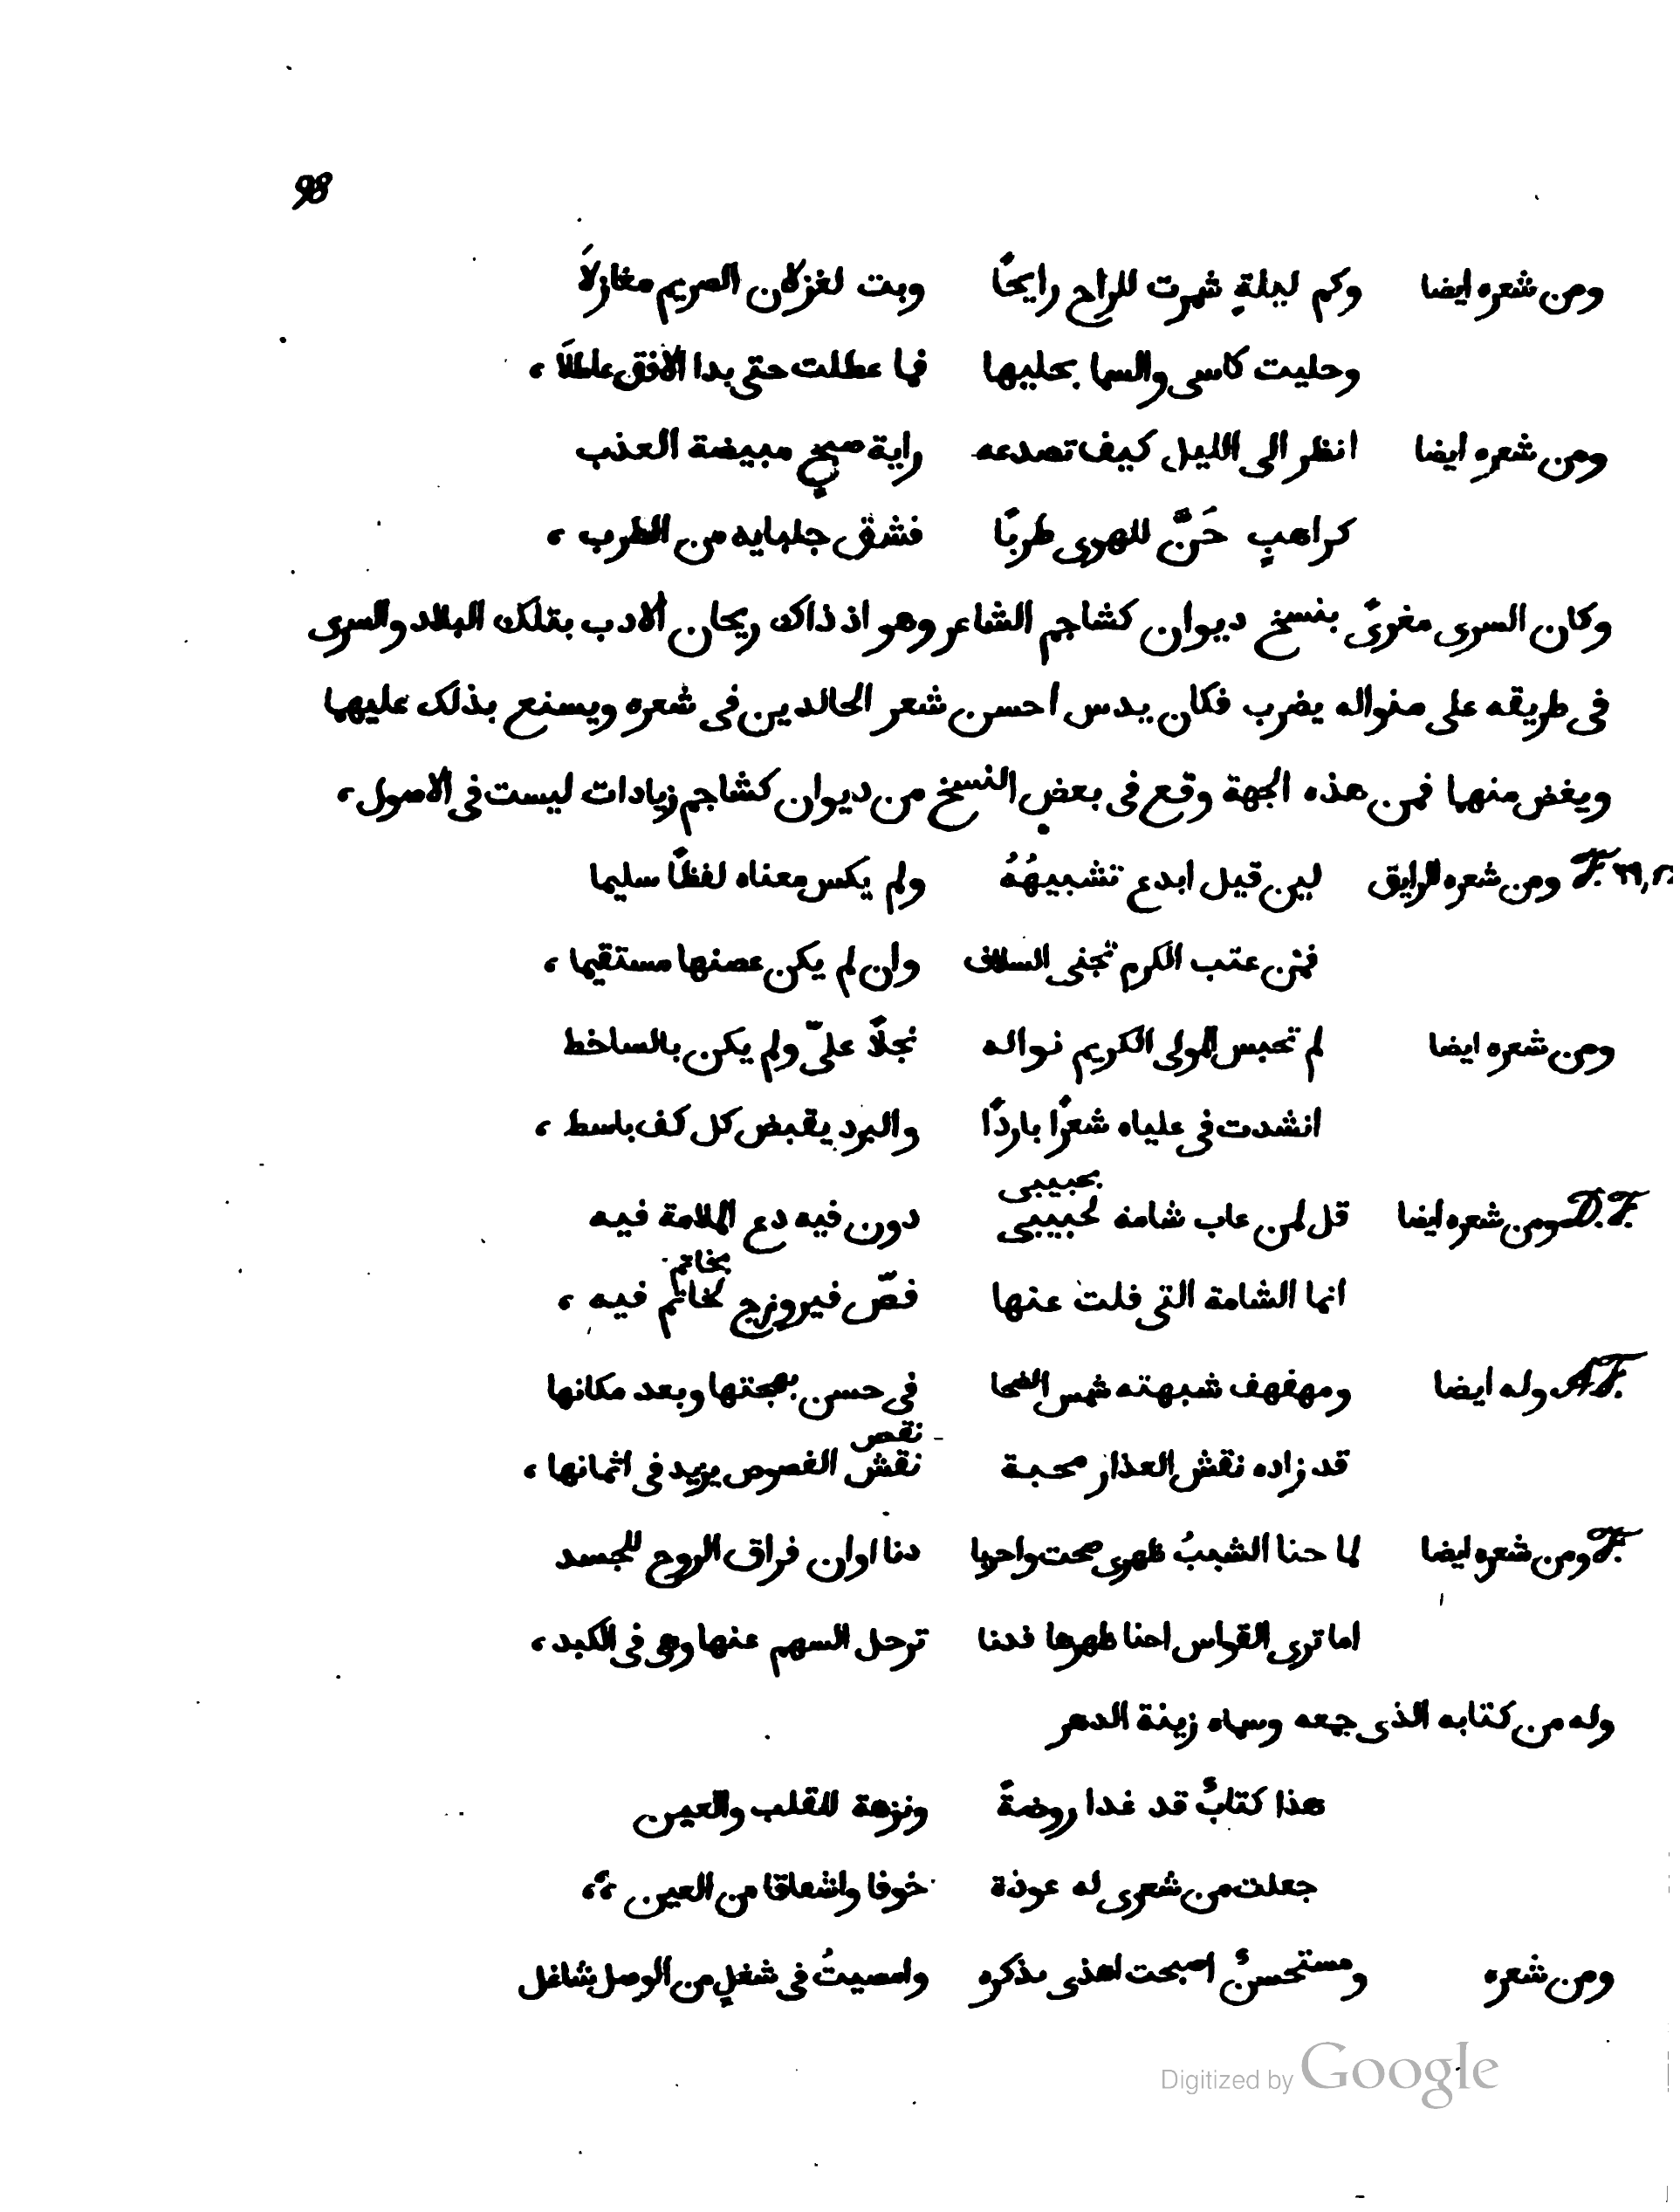 98
ومن شعره ايضا وكم ليلةٍ شمرت للراح رايحًا وبت لغزلان الصريم مغازلًا
وحليت كاسى والسما بحليها فما عطلت حتى بدا الافق عاطلًا ،
ومن شعره ايضا انظر الى الليل كيف تصدعه راية صبحٍ مبيضة العذب
كراهبٍ حَنَّ للهوى طربًا فشق جلبابه من الطرب ،
وكان السرى مغرىً بنسخ ديوان كشاجم الشاعر وهو اذ ذاك ريحان الادب بتلك البلاد والسرى
فى طريقه على منواله يضرب فكان يدس احسن شعر الخالديين فى شعره ويسنع بذلك عليهما
ويغض منهما فمن هذه الجهة وقع فى بعض النسخ من ديوان كشاجم زيادات ليست فى الاصول ،
F. ومن شعره الرايق لين قيل ابدع تشبيهُهُ ولم يكس معناه لفظًا سليما
فمن عتب الكرم تجنى السلاف وان لم يكن عصنها مستقيما ،
ومن شعره ايضا لم تحبس المولى الكريم نواله نجلًا علىّ ولم يكن بالساخط
انشدت فى علياه شعرًا باردًا والبرد يقبض كل كف باسط ،
بحبيبى
D. F. ومن شعره ايضا قل لمن عاب شامة لحبيبى دون فيه دع الملامة فيه
بخاتم
انما الشامة التى فلت عنها فصّ فيروزج لخاتم فيه ،
A F. وله ايضا ومهفهف شبهته شمس الضحا فى حسن بهجتها وبعد مكانها
نقص
قد زاده نقش العذار محبة نقش الفصوص يزيد فى اثمانها ،
F. ومن شعره ايضا لما حنا الشيبُ ظهرى صحت واحربا دنا اوان فراق الروح للجسد
اما ترى القواس احنا ظهرها فدنا ترحل السهم عنها وهى فى الكبد ،
وله من كتابه الذى جمعه وسماه زينة الدهر
هذا كتابٌ قد غدا روضةً ونزهة للقلب والعين
جعلت من شعرى له عوذة خوفا واشفاقا من العين ،،
ومن شعره ومستحسنٌ اصبحت اهذى بذكره وامسيتُ فى شغلٍ من الوصل شاغل
Digitized by Google